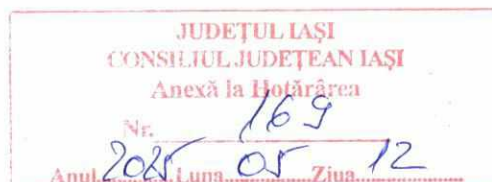 JUDEŢUL IAŞI
CONSILIUL JUDEŢEAN IAŞI
Anexă la Hotărârea
Nr. 169
Anul 2025 Luna 05 Ziua 12